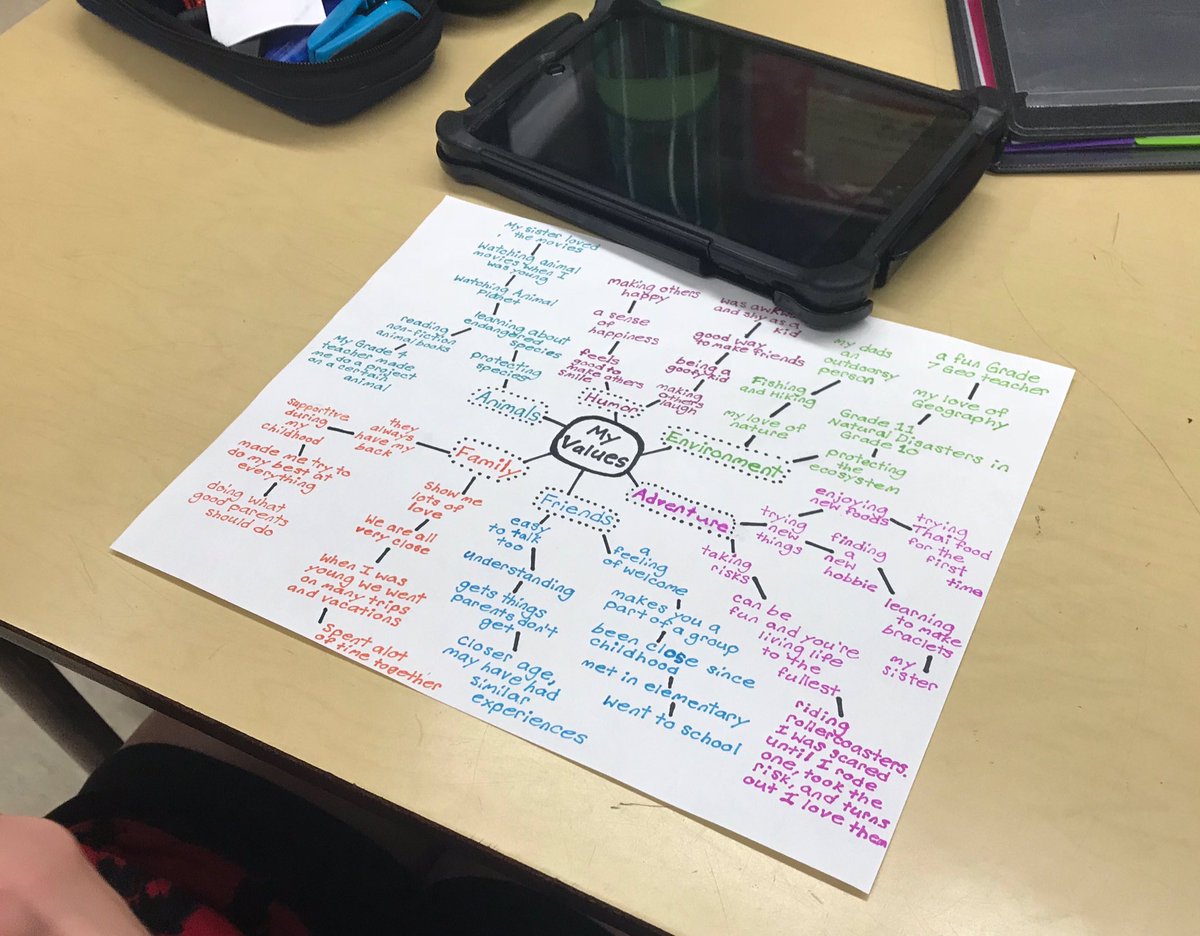 My Values
Animals
protecting
species
learning about
endangered
species
Watching Animal
Planet
Watching animal
movies when I
was young
My sister loved
the movies
reading
non-fiction
animal books
My Grade 4
teacher made
me do a project
on a certain
animal
Humor
feels
good to
make others
smile
a sense
of
happiness
making others
happy
making
others
laugh
being a
goofy kid
good way
to make friends
was
and shy as a
kid
Environment
my love of
nature
Fishing
and Hiking
my dads
an
outdoorsy
person
protecting
the
ecosystem
Grade 11
Natural Disasters in
Grade 10
my love of
Geography
a fun Grade
7 Geo teacher
Adventure
trying
new
things
enjoying
new foods
trying
Thai food
for the
first
time
finding
a
new
hobbie
learning
to make
braclets
my
sister
taking
risks
can be
fun and you're
living life
to the
fullest
riding
rollercoasters.
I was scared
until I rode
one, took the
risk, and turns
out I love them
Friends
easy
to talk
too
understanding
gets things
parents don't
get
Closer age,
may have had
similar
experiences
a
feeling
of welcome
makes you a
part of a group
been close since
childhood
met in elementary
Went to school
Family
they
always
have my
back
supportive
during
my
childhood
made me try to
do my best at
everything
doing what
good parents
should do
Show me
lots of
love
We are all
very close
When I was
young we went
on many trips
and vacations
spent alot
of time together